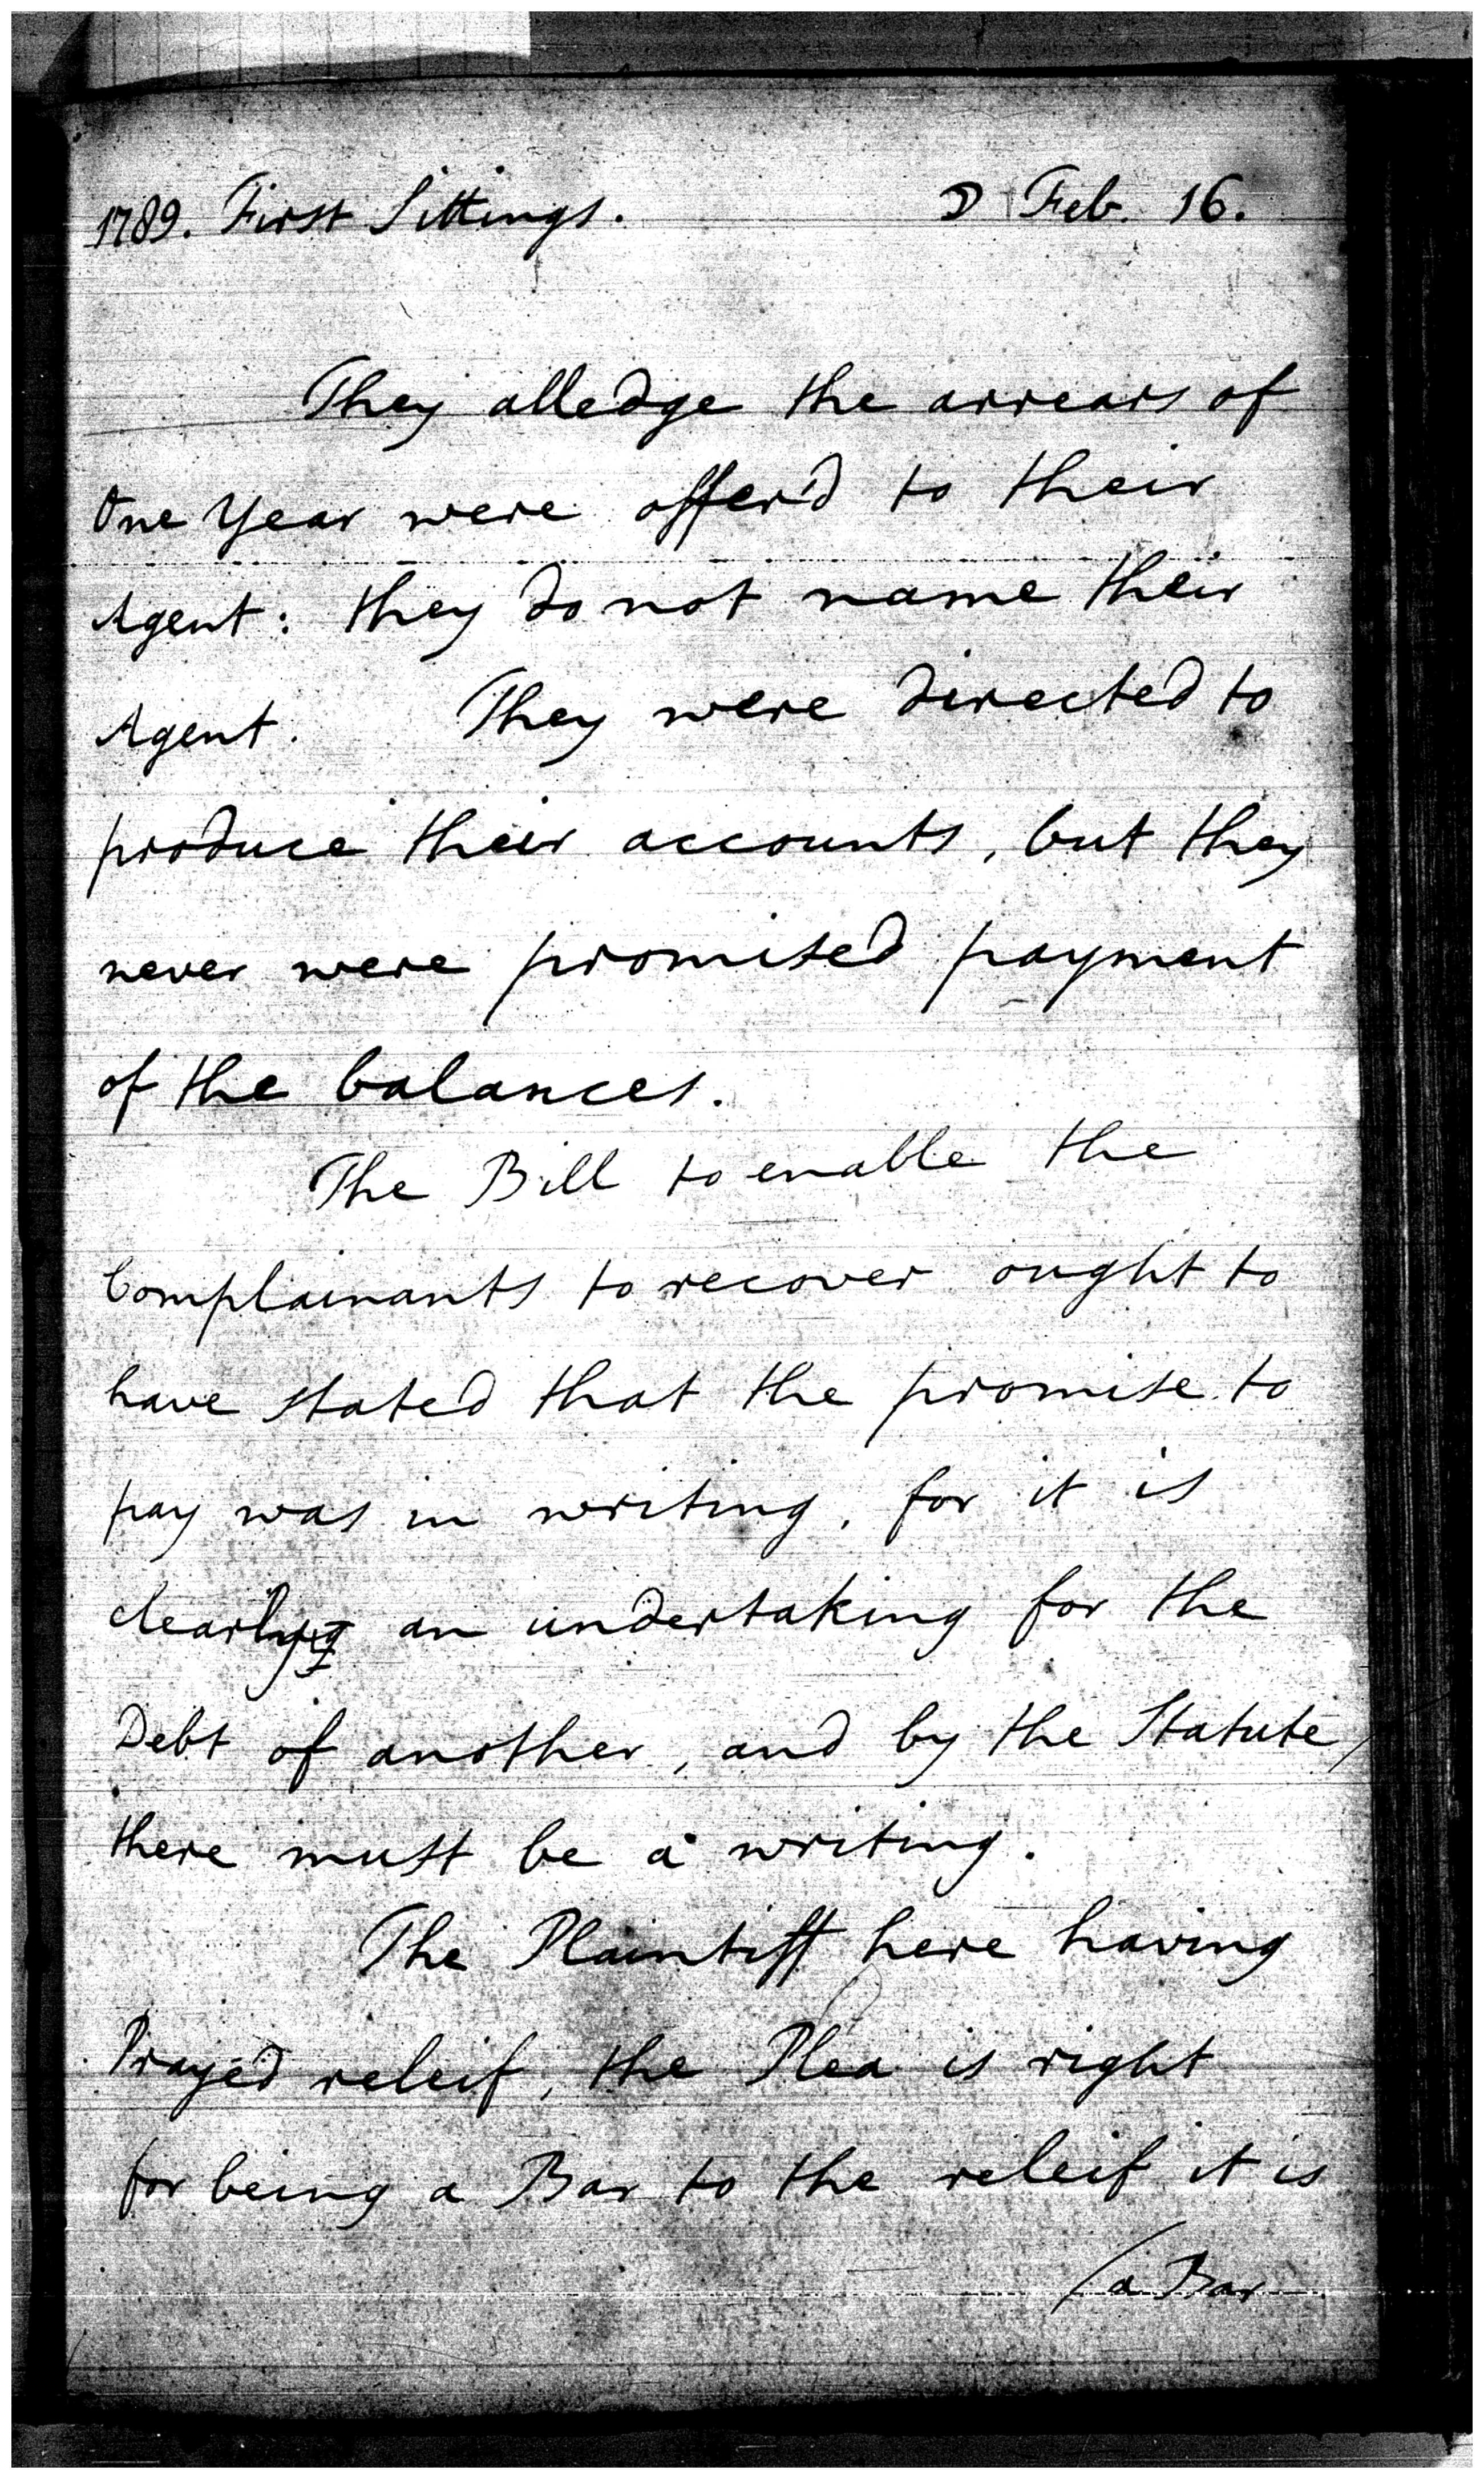 1789. First Sittings. ☽ Feb. 16.
They alledge the arrears of
One Year were offer'd to their
Agent: they do not name their
Agent. They were directed to
produce their accounts, but they
never were promised payment
of the balances.
The Bill to enable the
Complainants to recover ought to
have stated that the promise to
pay was in writing, for it is
clearly an undertaking for the
Debt of another, and by the Statute,
there must be a writing.
The Plaintiff here having
Prayed releif, the Plea is right
for being a Bar to the releif it is
/a Bar